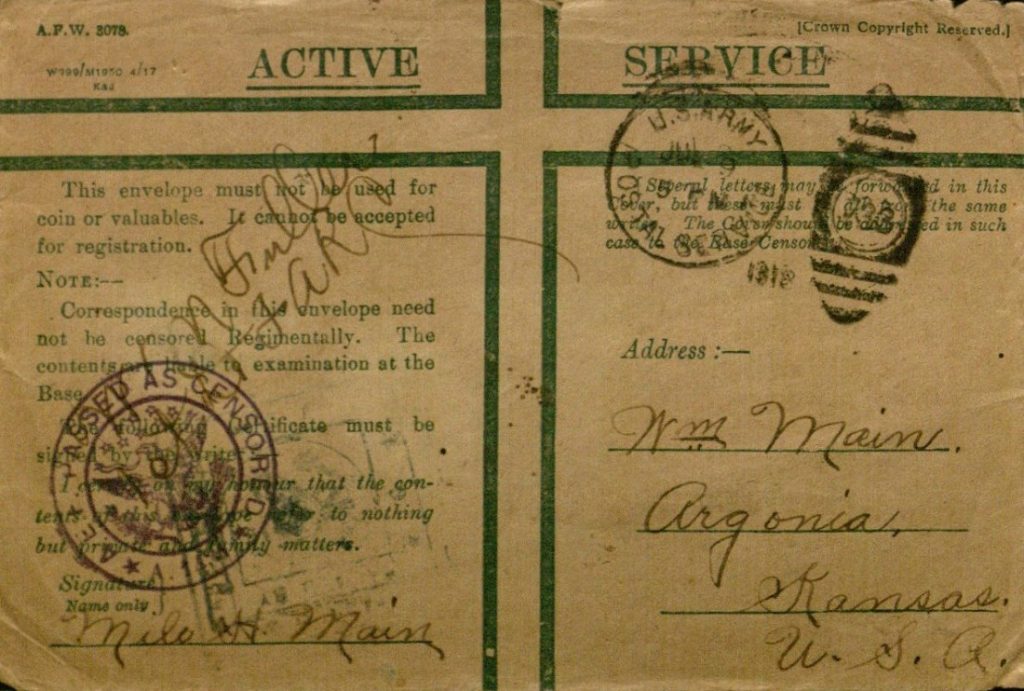 A.F.W. 3078.
[Crown Copyright Reserved.]
W799/M1950 4/17
K&J
ACTIVE SERVICE
U.S. ARMY
JUL
1918
This envelope must not be used for
coin or valuables. It cannot be accepted
for registration.
NOTE:—
Correspondence in this envelope need
not be censored Regimentally. The
contents are liable to examination at the
Base.
The following Certificate must be
signed by the writer
I certify on my honour that the con-
tents of this envelope refer to nothing
but private and family matters.
Signature
Name only
Milo H. Main
PASSED AS CENSORED
A.E.F.
Several letters may be forwarded in this
Cover, but these must all be from the same
writer. The Cover should be addressed in such
case to the Base Censor.
Address :—
Wm Main.
Argonia,
Kansas.
U. S. A.